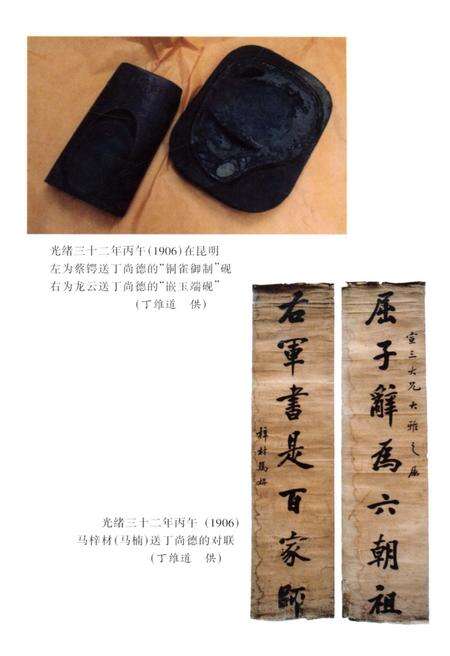 光绪三十二年丙午(1906)在昆明
左为蔡锷送丁尚德的“铜雀御制”砚
右为龙云送丁尚德的“嵌玉端砚”
(丁维道 供)
宣三大兄大雅之属
屈子辭為六朝祖
右軍書是百家師
梓材馬
光绪三十二年丙午 (1906)
马梓材(马楠)送丁尚德的对联
(丁维道 供)